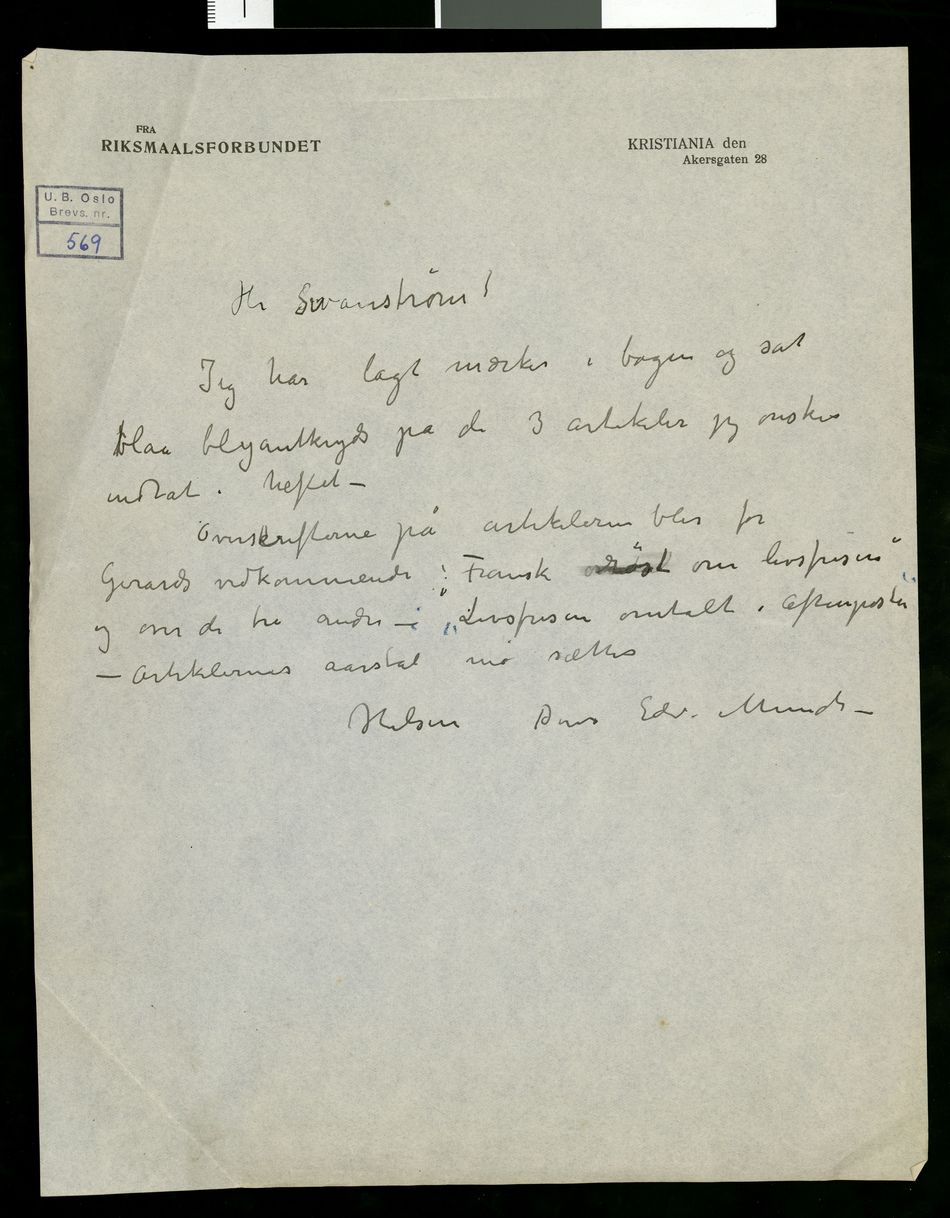 FRA
RIKSMAALSFORBUNDET
KRISTIANIA den
Akersgaten 28
U. B. Oslo
Brevs. nr.
569
Hr Swanstrøm!
Jeg har lagt mærker i bogen og sat
blaa blyantkryds på de 3 artikeler jeg ønsker
indtat i heftet –
Overskrifterne på artiklerne blir for
Gerards vidkommende: „Fransk röst om livsfrisen“
og over de tre andre – „Livsfrisen omtalt i Aftenposten“
– Artiklernes aarstal må sættes
Hilsen Deres Edv. Munch –